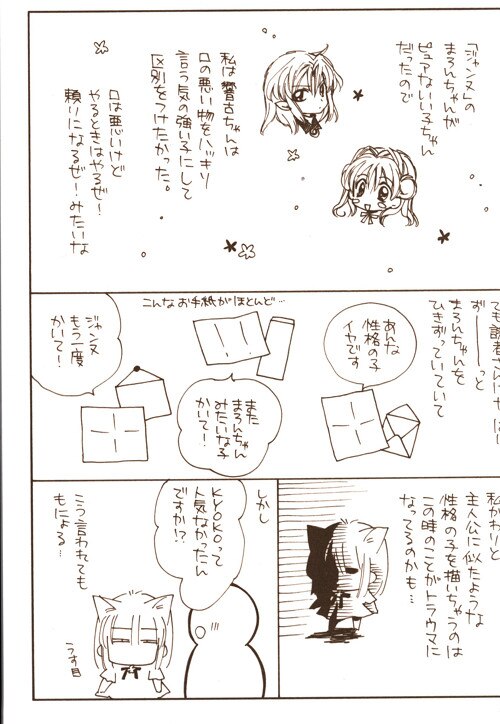 「ジャンヌ」の
まろんちゃんが
ピュアないい子ちゃん
だったので
私は響古ちゃんは
口の悪い物をハッキリ
言う気の強い子にして
区別をつけたかった。
口は悪いけど
やるときはやるぜ!
頼りになるぜ!みたいな
ずーーっと
まろんちゃんを
ひきずっていていて
こんなお手紙がほとんど…
あんな
性格の子
イヤです
また
まろんちゃん
みたいな子
かいて!
ジャンヌ
もう一度
かいて!
私がわりと
主人公に似たような
性格の子を描いちゃうのは
この時のことがトラウマに
なってるのかも…
しかし
KYOKOって
人気なかったん
ですか!?
こう言われても
もにょる…
うす目